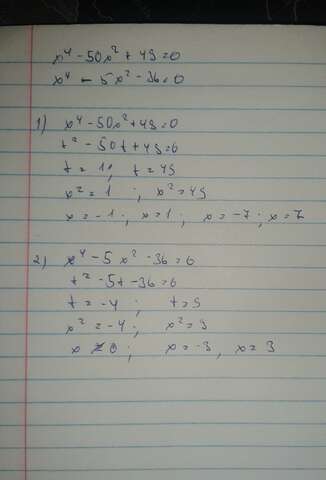 x⁴ - 50x² + 49 = 0
x⁴ - 5x² - 36 = 0
1) x⁴ - 50x² + 49 = 0
t² - 50t + 49 = 0
t = 1; t = 49
x² = 1 ; x² = 49
x = -1 ; x = 1 ; x = -7 ; x = 7
2) x⁴ - 5x² - 36 = 0
t² - 5t - 36 = 0
t = -4 ; t = 9
x² = -4 ; x² = 9
x ≠ 0 ; x = -3 , x = 3